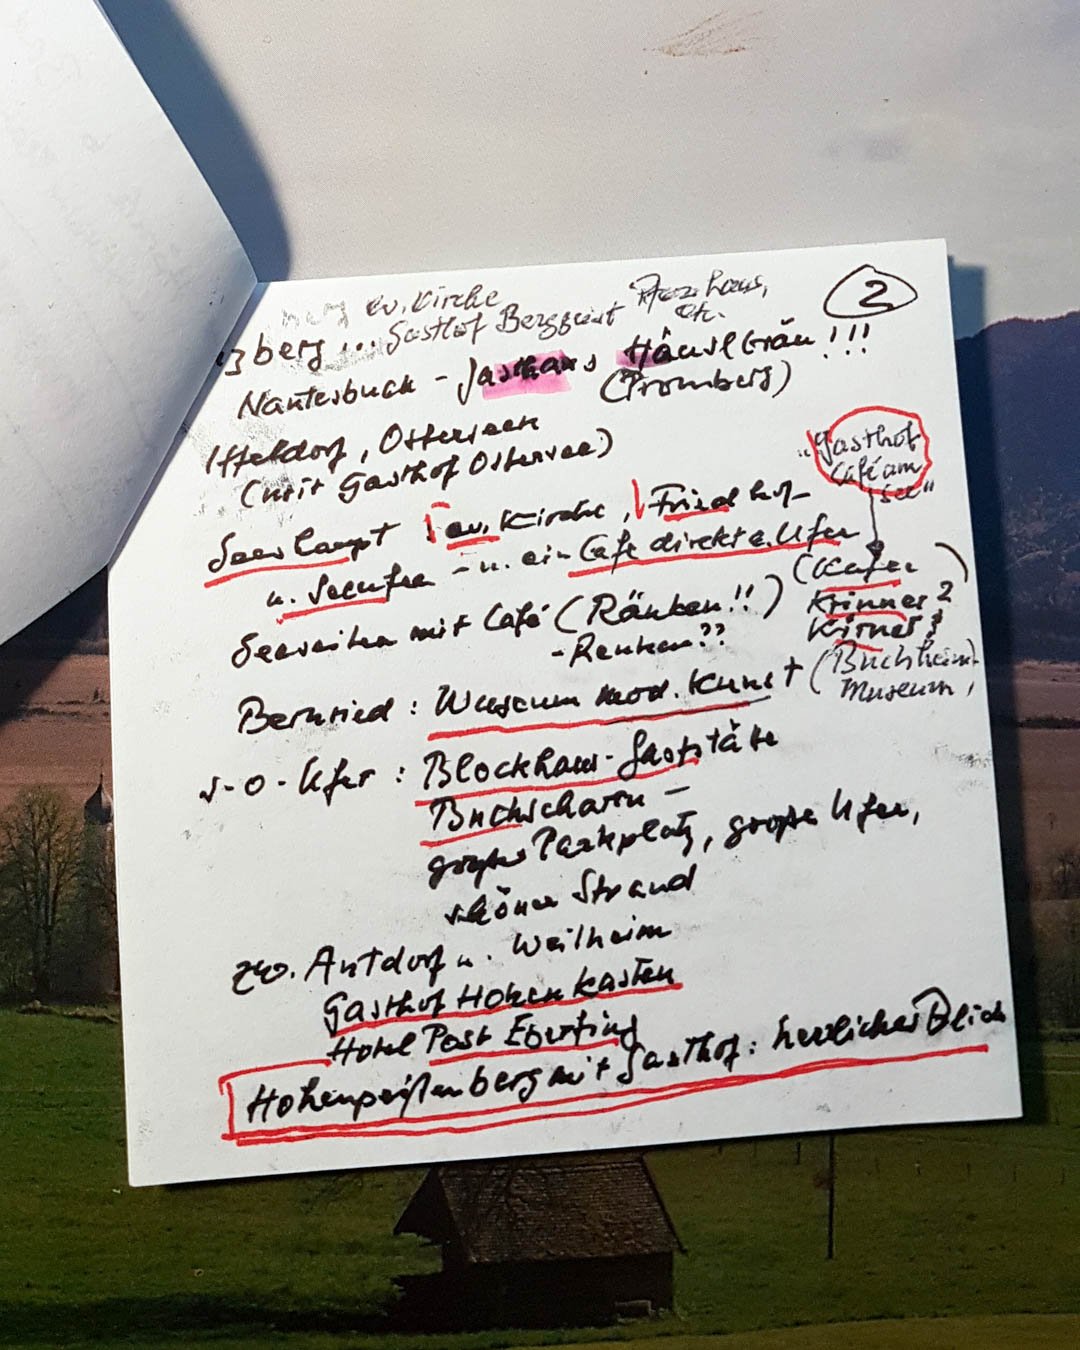 2
ev. Kirche
Pfarrhaus,
zberg ... Gasthof Berggeist etc.
Nantesbuch - Gasthaus Häuslbräu !!!
(Promberg)
Iffeldorf, Osterseen
(mit Gasthof Ostersee)
"Gasthof
Café am
See"
Seeshaupt ev. Kirche, Friedhof -
u. Seeufer - u. ein Cafe direkt a. Ufer
(Kafee
Krinner?
Kirner?)
Seeseiten mit Café (Ränken!!)
- Renken??
Bernried: Museum mod. Kunst (Buchheim)
Museum,
S-O-Ufer: Blockhaus-Gaststätte
Buchscharn -
großer Parkplatz, großes Ufer,
schöner Strand
zw. Antdorf u. Weilheim
Gasthof Hohenkasten
Hotel Post Eberfing
Hohenpeißenberg mit Gasthof: herrlicher Blick